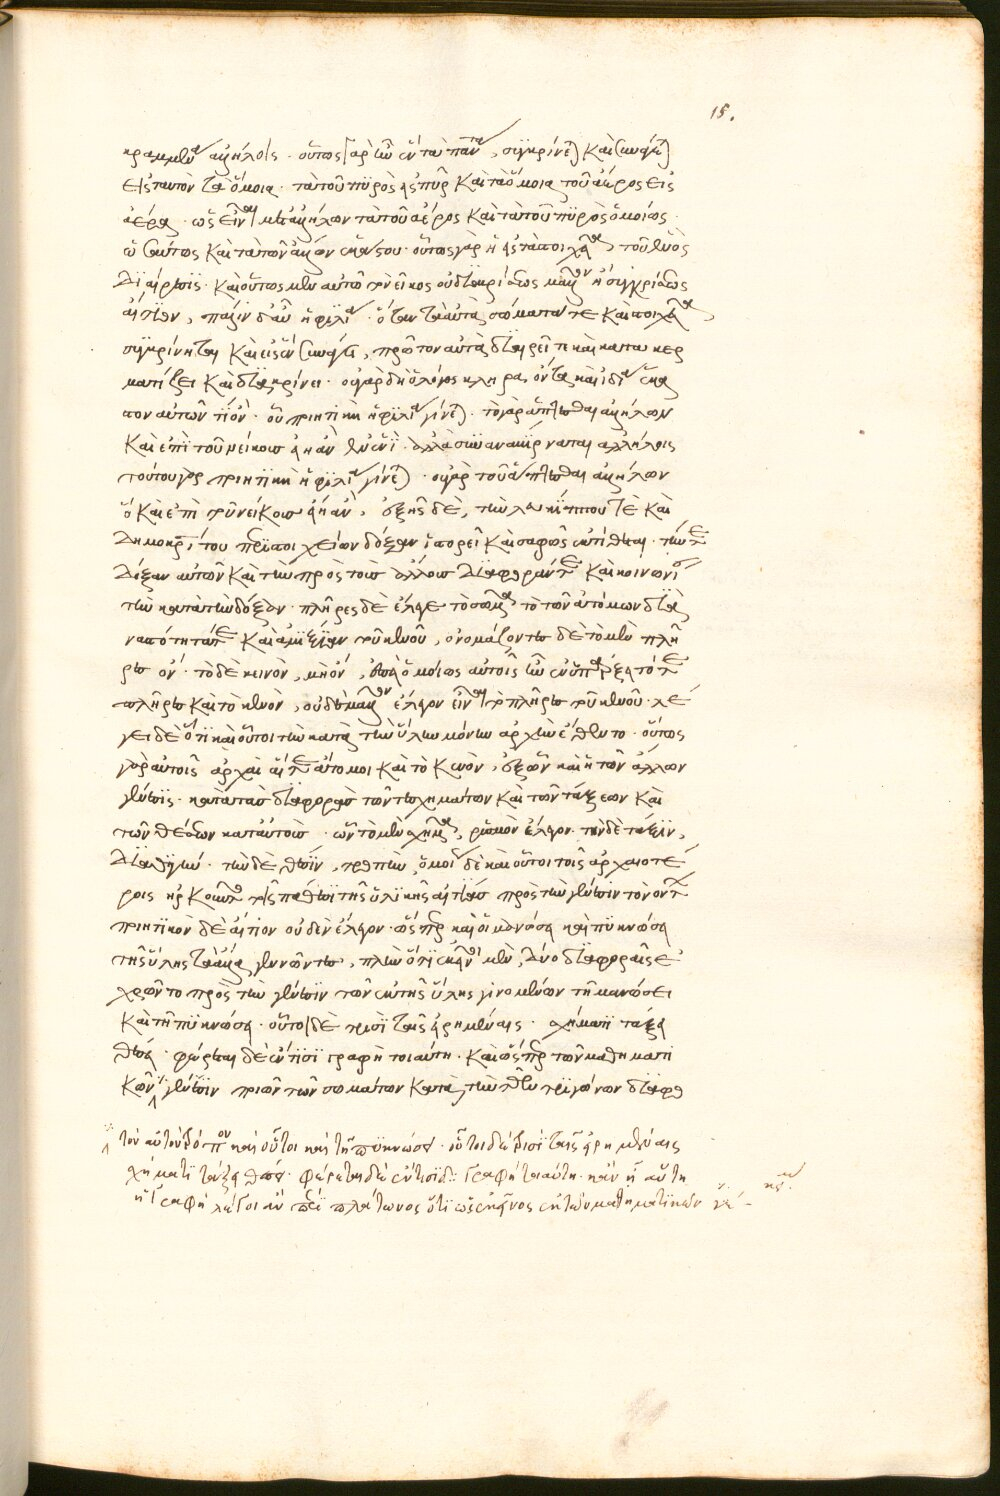 15.
κραμμένα ἀλλήλοις · οὕτως γὰρ ὢν ἐν τῶ παντὶ, συγκρίνει καὶ συνάγει
εἰς ταυτὸν τὰ ὅμοια · τὰ τοῦ πυρὸς εἰς πῦρ καὶ τὰ ὅμοια τοῦ ἀέρος εἰς
ἀέρα · ὡς εἶναι μετ' ἀλλήλων τὰ τοῦ ἀέρος καὶ τὰ τοῦ πυρὸς ὁμοίως ·
ὡσαύτως καὶ τὰ τῶν ἄλλων ἑκάστου · οὕτως γὰρ ἡ εἰς τὰ στοιχεῖα τοῦ ἑνὸς
διαίρεσις · καὶ οὕτως μὲν αὐτῶ τὸ νεῖκος οὐ διακρίσεως μᾶλλον ἢ συγκρίσεως
αἴτιον, πάλιν δ' αὖ ἡ φιλία · ὅταν τὰ αὐτὰ σώματά τε καὶ στοιχεῖα
συγκρίνηται καὶ εἰς ἓν συνάγῃ, πρῶτον αὐτὰ διαιρεῖ τι καὶ κατακερ
ματίζει καὶ διακρίνει · οὐ γὰρ δὴ ὁλόκληρα ὄντα καὶ ἰδία ἕκα
στον αὐτῶν · οὗ ποιητικὴ ἡ φιλία γίνεται · τὸ γὰρ ἅπτεσθαι ἀλλήλων
καὶ ἐπὶ τοῦ νείκους εἴη ἂν · ἀλλὰ συνανακίρναται ἀλλήλοις
τούτου γὰρ ποιητικὴ ἡ φιλία γίνεται · οὐ γὰρ τοῦ ἅπτεσθαι ἀλλήλων
ὃ καὶ ἐπὶ τοῦ νείκους εἴη ἂν, ἑξῆς δὲ, τὴν λευκίππου τὲ καὶ
δημοκρίτου περὶ στοιχείων δόξαν ἱστορεῖ καὶ σαφῶς ἐκτίθεται · τήν τε
δόξαν αὐτῶν καὶ τὴν πρὸς τοὺς ἄλλους διαφοράν τε καὶ κοινωνίαν
τὴν κατὰ τὴν δόξαν · πλῆρες δὲ ἔλεγε τὸ σῶμα τὸ τῶν ἀτόμων διὰ
ναστότητά τε καὶ ἀμιξίαν τοῦ κενοῦ, ὀνομάζοντες δὲ τὸ μὲν πλῆ
ρες ὂν · τὸ δὲ κενὸν, μὴ ὂν, ἐπεὶ ὁμοίως αὐτοῖς ἦν ἐν ὑπάρξει τό τε
πλῆρες καὶ τὸ κενὸν, οὐδὲ μᾶλλον ἔλεγον εἶναι τὸ πλῆρες τοῦ κενοῦ · λέ
γει δὲ ὅτι καὶ οὗτοι τὴν κατὰ τὴν ὕλην μόνην ἀρχὴν ἔθεντο · οὕτως
γὰρ αὐτοῖς ἀρχαὶ αἵ τε ἄτομοι καὶ τὸ κενὸν, ἐξ ὧν καὶ ἡ τῶν ἄλλων
γένεσις · κατὰ τὰς διαφορὰς τῶν τε σχημάτων καὶ τῶν τάξεων καὶ
τῶν θέσεων κατ' αὐτοὺς · ὧν τὸ μὲν σχῆμα, ῥυσμὸν ἔλεγον · τὴν δὲ τάξιν,
διαθιγὴν · τὴν δὲ θέσιν, τροπὴν, ὅμοιοι δὲ καὶ οὗτοι τοῖς ἀρχαιοτέ
ροις ἠρκοῦντο τοῖς πάθεσι τῆς ὑλικῆς αἰτίας πρὸς τὴν γένεσιν τῶν ὄντων
ποιητικὸν δὲ αἴτιον οὐδὲν ἔλεγον · ὥσπερ καὶ οἱ μανώσει καὶ πυκνώσει
τῆς ὕλης τἄλλα γεννῶντες, πλὴν ὅτι ἐκεῖνοι μὲν, δύο διαφοραῖς ἐ
χρῶντο πρὸς τὴν γένεσιν τῶν ἐκ τῆς ὕλης γινομένων τῆ μανώσει
καὶ τῆ πυκνώσει · οὗτοι δὲ τρισὶ ταῖς εἰρημέναις · σχήματι τάξει
θέσει · φέρεται δὲ ἔν τισι γραφὴ τοιαύτη · καὶ ὥσπερ τῶν μαθηματι
κῶν γένεσιν τριῶν τῶν σωμάτων κατὰ τὴν τῶν τριγώνων διαφο
τὸν αὐτὸν τρόπον καὶ οὗτοι καὶ τῆ πυκνώσει · οὗτοι δὲ τρισὶ ταῖς εἰρημέναις
σχήματι τάξει θέσει · φέρεται δὲ ἔν τισι δὲ γραφὴ τοιαύτη · κἂν ᾖ αὕτη
ἡ γραφὴ λέγοι ἂν περὶ πλάτωνος ὅτι ὡς ἐκεῖνος ἐκ τῶν μαθηματικῶν